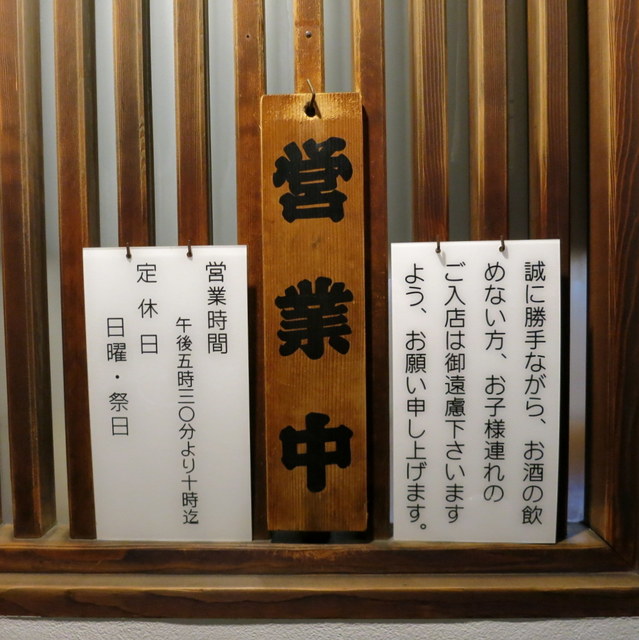 誠に勝手ながら、お酒の飲
めない方、お子様連れの
ご入店は御遠慮下さいます
よう、お願い申し上げます。
営業中
営業時間
午後五時三〇分より十時迄
定休日
日曜・祭日